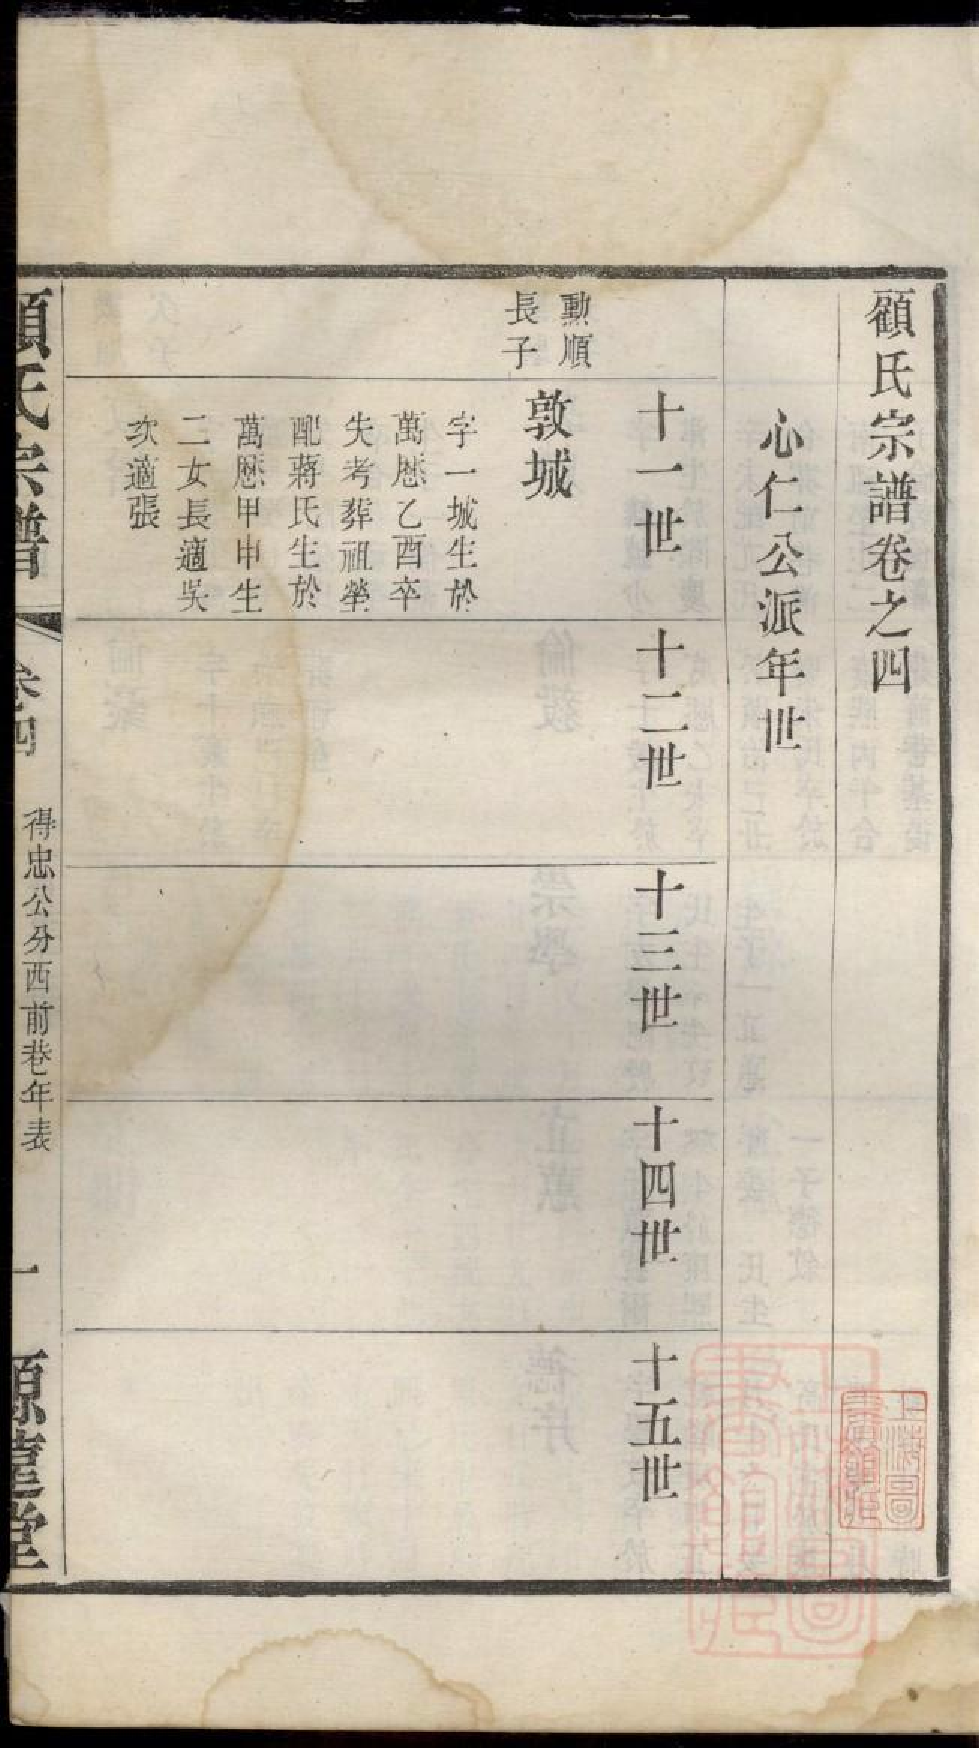 顧氏宗譜卷之四
心仁公派年世
十一世
十二世
十三世
十四世
十五世
勲順
長子
敦城
字一城生於
萬厯乙酉卒
失考葬祖塋
配蔣氏生於
萬厯甲申生
二女長適吳
次適張
顧氏宗譜
卷四
得忠公分西前巷年表
一
源蘁堂
上海圖
書館藏